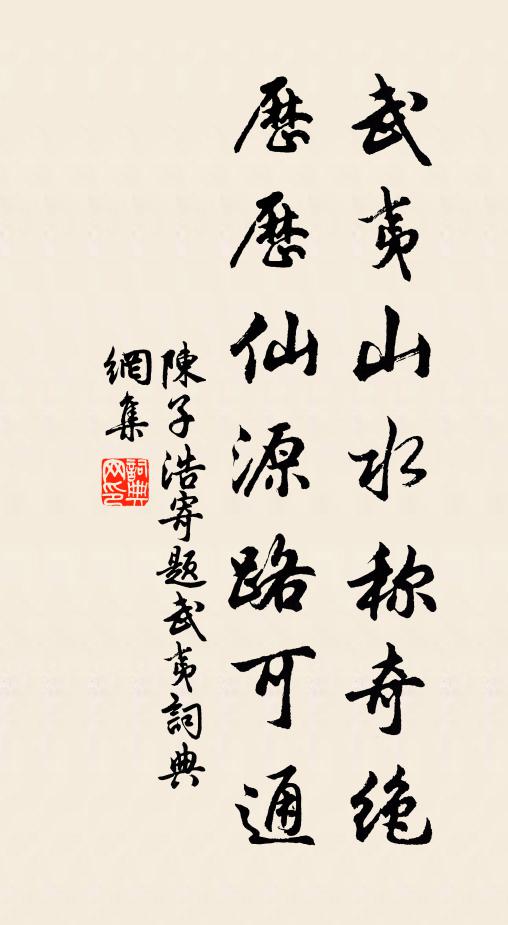 武夷山水称奇绝
歷歷仙源路可通
陳子浩寄題武夷詞典
網集
詞典
网印